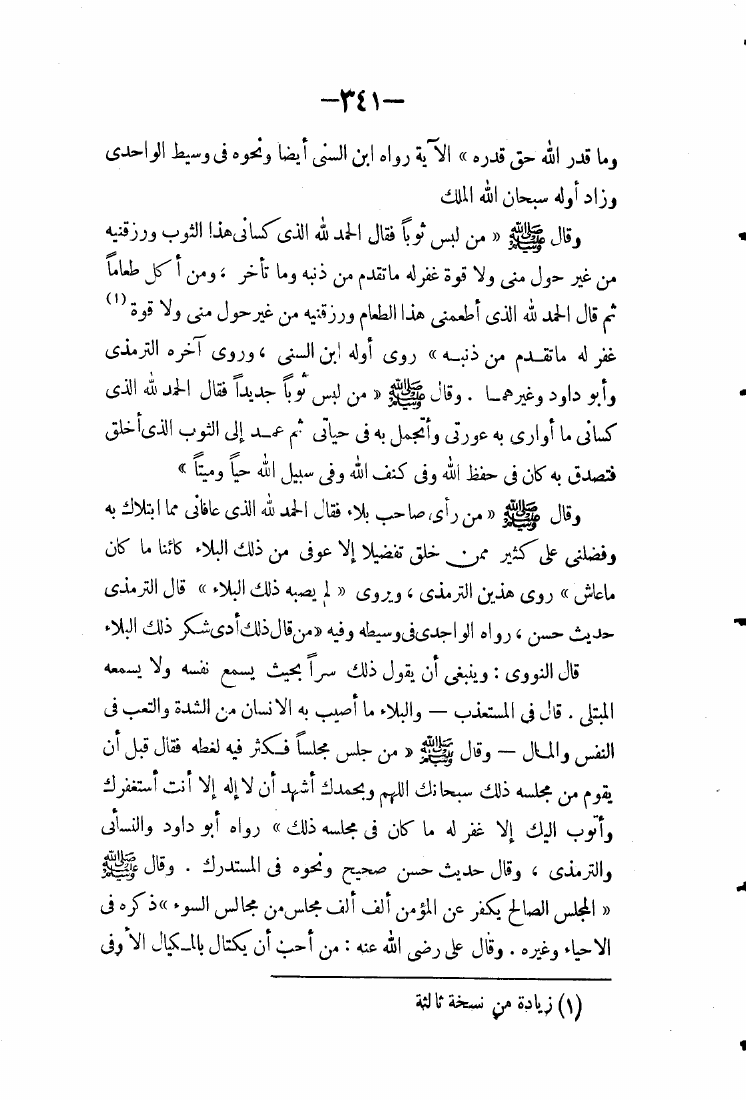 —٣٤١—
وما قدر الله حق قدره » الآية رواه ابن السنى أيضا ونحوه فى وسيط الواحدى
وزاد أوله سبحان الله الملك
وقال ﷺ « من لبس ثوباً فقال الحمد لله الذى كسانى هذا الثوب ورزقنيه
من غير حول منى ولا قوة غفر له ماتقدم من ذنبه وما تأخر ، ومن أكل طعاماً
ثم قال الحمد لله الذى أطعمنى هذا الطعام ورزقنيه من غير حول منى ولا قوة (١)
غفر له ماتقـدم من ذنبـه » روى أوله ابن السنى ، وروى آخره الترمذى
وأبو داود وغيرهمـا . وقال ﷺ « من لبس ثوباً جديداً فقال الحمد لله الذى
كسانى ما أوارى به عورتى وأتجمل به فى حياتى ثم عمـد إلى الثوب الذى أخلق
فتصدق به كان فى حفظ الله وفى كنف الله وفى سبيل الله حياً وميتاً »
وقال ﷺ « من رأى صاحب بلاء فقال الحمد لله الذى عافانى مما ابتلاك به
وفضلنى على كثير ممن خلق تفضيلا إلا عوفى من ذلك البلاء كائنا ما كان
ماعاش » روى هذين الترمذى ، ويروى « لم يصبه ذلك البلاء » قال الترمذى
حديث حسن ، رواه الواحدى فى وسيطه وفيه «من قال ذلك أدى شكر ذلك البلاء
قال النووى : وينبغى أن يقول ذلك سراً بحيث يسمع نفسه ولا يسمعه
المبتلى . قال فى المستعذب — والبلاء ما أصيب به الانسان من الشدة والتعب فى
النفس والمـال — وقال ﷺ « من جلس مجلساً فـكثر فيه لغطه فقال قبل أن
يقوم من مجلسه ذلك سبحانك اللهم وبحمدك أشهد أن لاإله إلا أنت أستغفرك
وأتوب اليك إلا غفر له ما كان فى مجلسه ذلك » رواه أبو داود والنسأئى
والترمذى ، وقال حديث حسن صحيح ونحوه فى المستدرك . وقال ﷺ
« المجلس الصالح يكفر عن المؤمن ألف ألف مجلس من مجالس السوء »ذكره فى
الاحياء وغيره . وقال على رضى الله عنه : من أحب أن يكتال بالمـكيال الأوفى
(١) زيادة من نسخة ثالثة